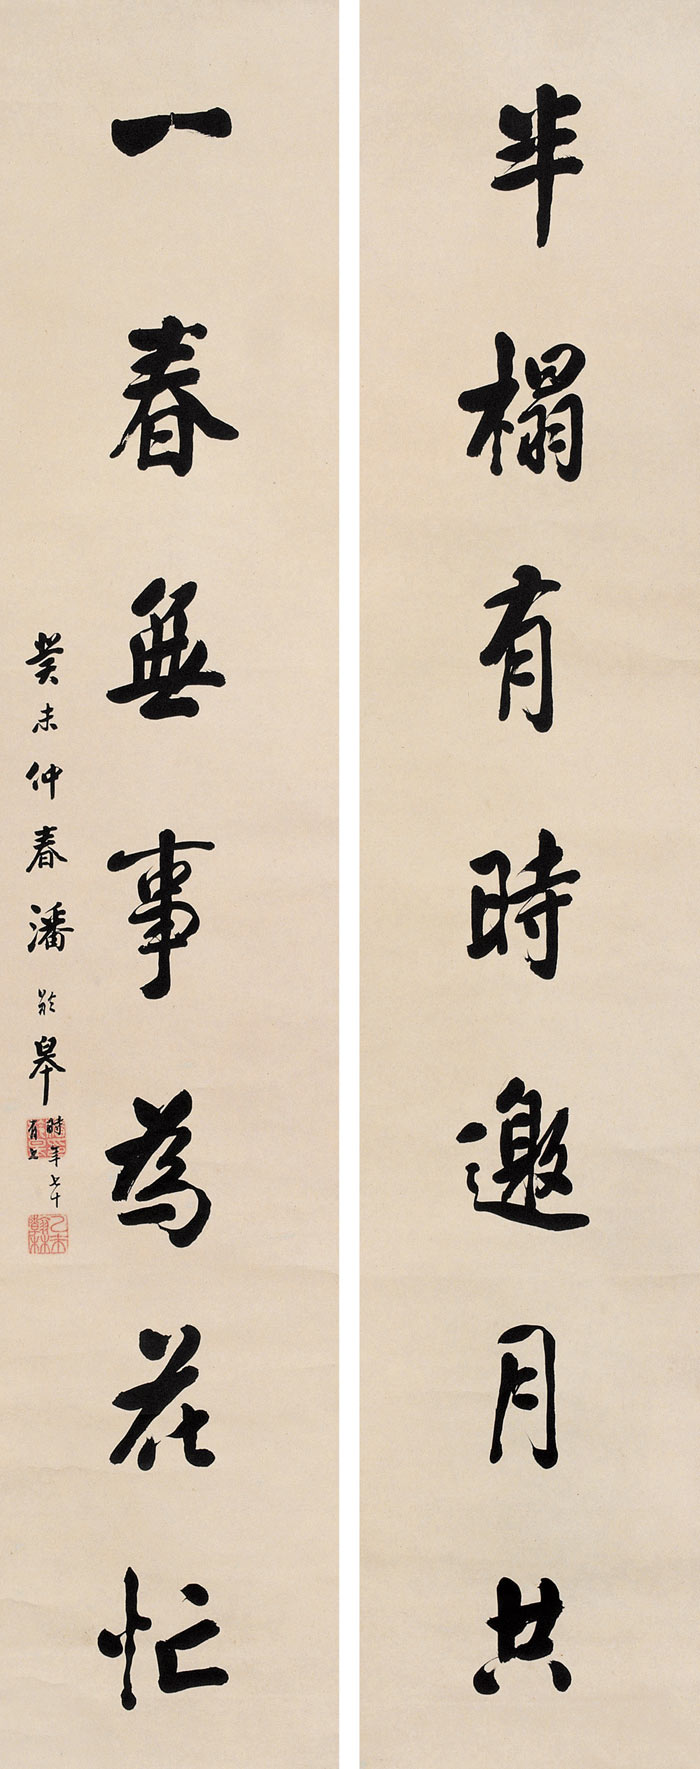 半榻有時邀月共
一春無事為花忙
癸未仲春潘齡皋
時年七十
有七
乙未
翰林